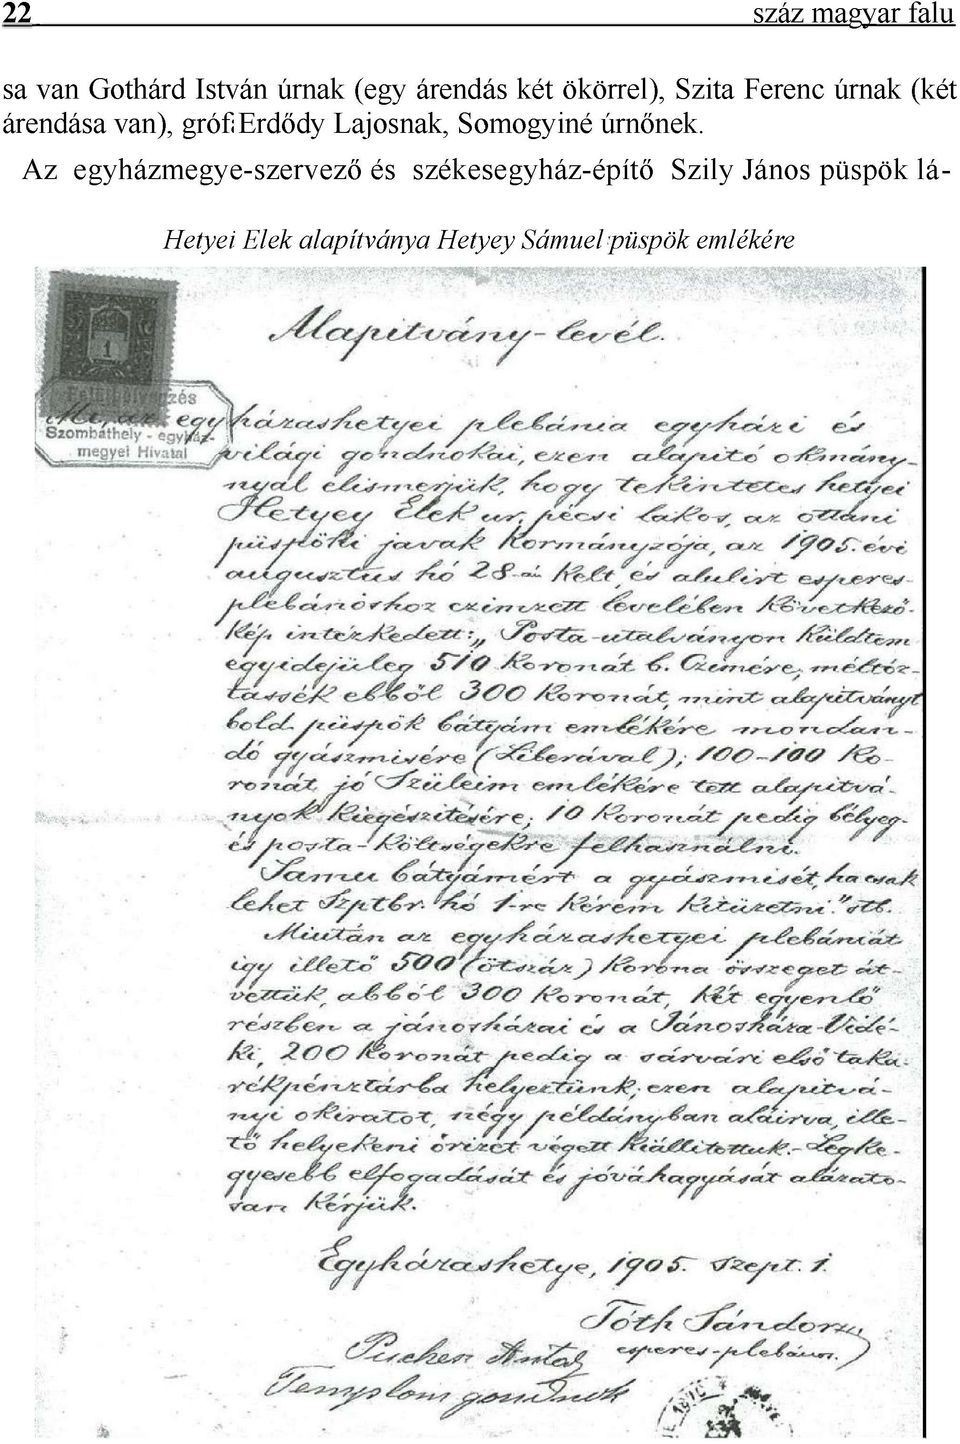 22 száz magyar falu
sa van Gothárd István úrnak (egy árendás két ökörrel), Szita Ferenc úrnak (két
árendása van), gróf Erdődy Lajosnak, Somogyiné úrnőnek.
Az egyházmegye-szervező és székesegyház-építő Szily János püspök lá-
Hetyei Elek alapítványa Hetyey Sámuel püspök emlékére
1
Alapitvány-levél.
Felülbélyegzés
Szombathely - egyház-
megyei Hivatal
Mi, az egyházashetyei plebánia egyházi és
világi gondnokai, ezen alapitó okmány-
nyal elismerjük, hogy tekintetes hetyei
Hetyey Elek ur, pécsi lakos, az ottani
püspöki javak kormányzója, az 1905. évi
augusztus hó 28-án kelt, és alulirt esperes-
plebánoshoz czimzett levelében következő-
kép intézkedett: „Posta-utalványon küldtem
egyidejüleg 510 koronát b. Czimére, méltóz-
tassék ebből 300 koronát, mint alapitványt
bold. püspök bátyám emlékére mondan-
dó gyászmisére (Liberával); 100-100 ko-
ronát jó Szüleim emlékére tett alapitvá-
nyok kiegészitésére; 10 koronát pedig bélyeg-
és posta-költségekre felhasználni.
Samu bátyámért a gyászmisét, ha csak
lehet Szptbr. hó 1-re kérem kitüzetni." stb.
Miután az egyházashetyei plebániát
igy illető 500 (ötszáz) korona összeget át-
vettük, abból 300 koronát, két egyenlő
részben a jánosházai és a Jánosháza-Vidé-
ki, 200 koronát pedig a sárvári első taka-
rékpénztárba helyeztünk; ezen alapitvá-
nyi okiratot, négy példányban aláirva, ille-
tő helyekeni őrizet végett kiállitottuk. - Legke-
gyesebb elfogadását és jóváhagyását alázato-
san kérjük.
Egyházashetye, 1905. szept. 1.
Tóth Sándor
esperes-plebános.
Puchen Antal
Templom gondnok